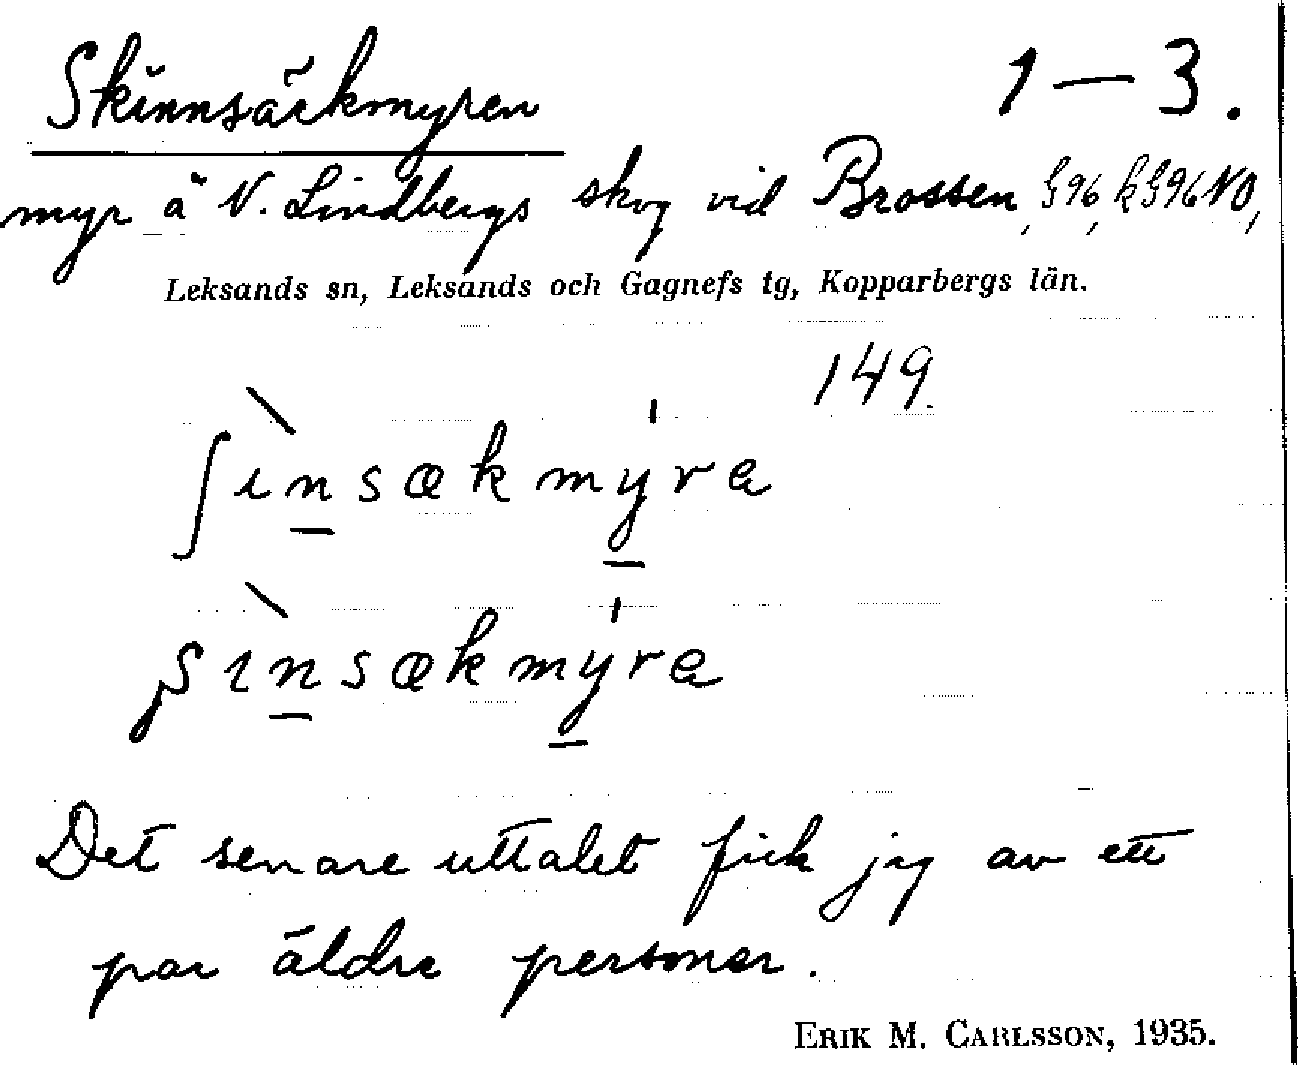 Skinnsäckmyren 1 — 3.
myr å V. Lindbergs skog vid Brossen, §96, k§96NO,
Leksands sn, Leksands och Gagnefs tg, Kopparbergs län.
149.
ʃìnsækmýra
Det senare uttalet fick jag av ett
par äldre personer.
ERIK M. CARLSSON, 1935.